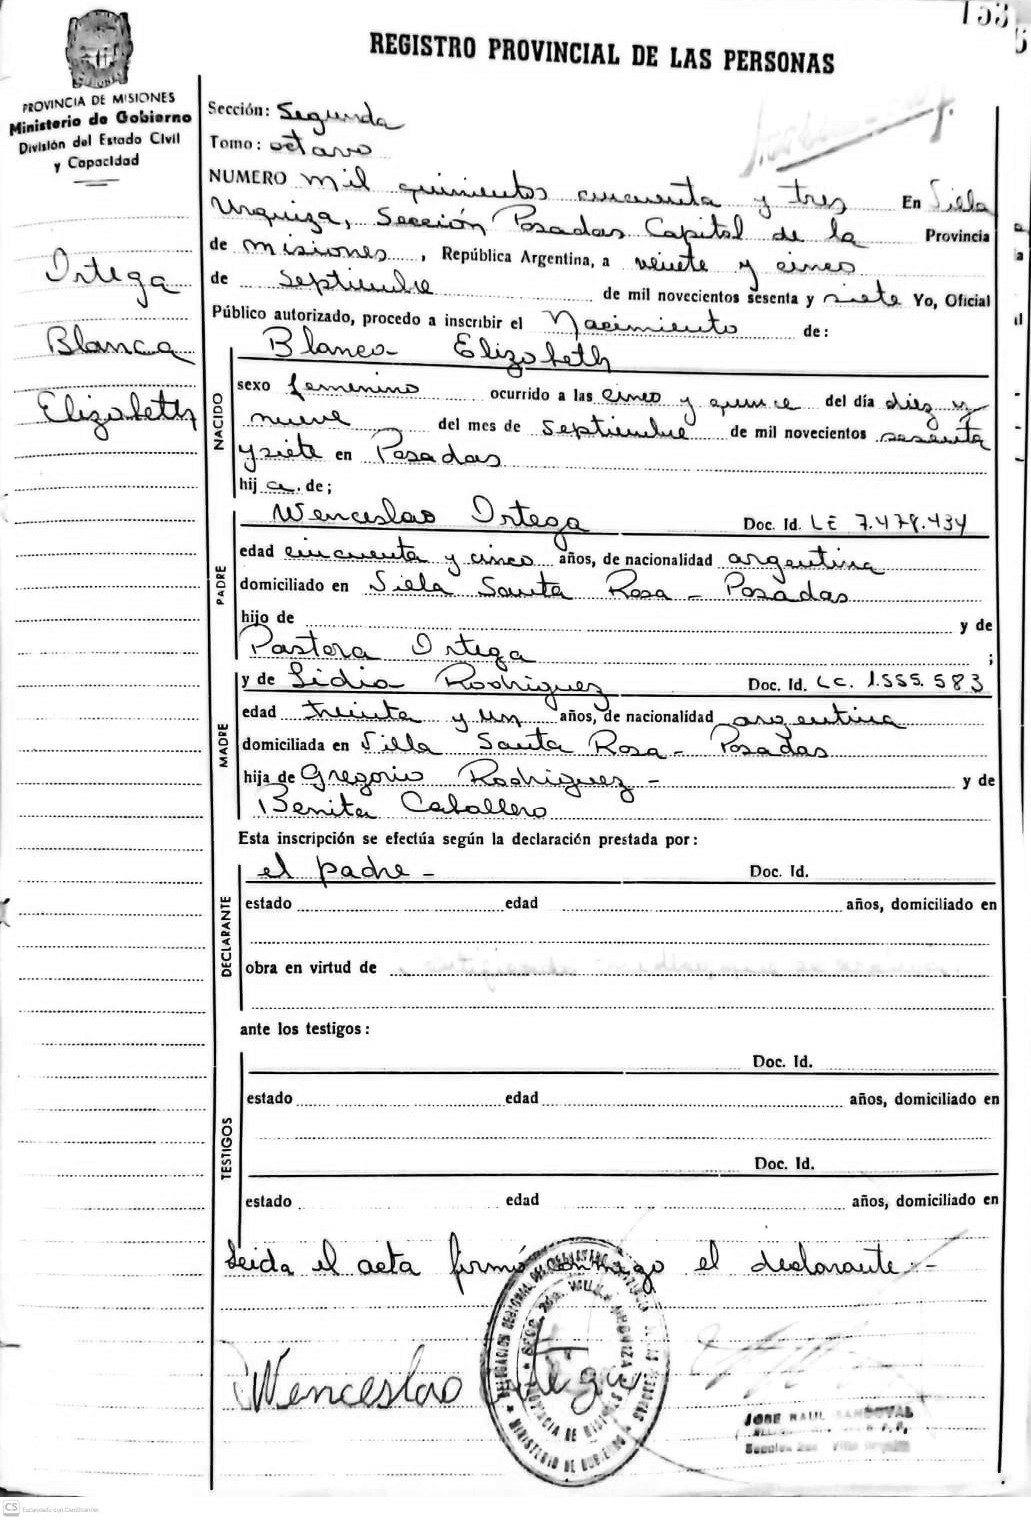 153
REGISTRO PROVINCIAL DE LAS PERSONAS
PROVINCIA DE MISIONES
Ministerio de Gobierno
División del Estado Civil
y Capacidad
Ortega
Blanca
Elizabeth
Sección: Segunda
Tomo: octavo
NUMERO mil quinientos cincuenta y tres En Villa
Urquiza, Sección Posadas Capital de la Provincia
de misiones, República Argentina, a veinte y cinco
de septiembre de mil novecientos sesenta y siete Yo, Oficial
Público autorizado, procedo a inscribir el Nacimiento de:
NACIDO
Blanca Elizabeth
sexo femenino ocurrido a las cinco y quince del día diez y
nueve del mes de septiembre de mil novecientos sesenta
y siete en Posadas
hija de;
PADRE
Wenceslao Ortega Doc. Id. LE 7.479.434
edad cincuenta y cinco años, de nacionalidad argentina
domiciliado en Villa Santa Rosa - Posadas
hijo de y de
Pastora Ortega ;
MADRE
y de Lidia Rodriguez Doc. Id. LC. 1.555.583
edad treinta y un años, de nacionalidad argentina
domiciliada en Villa Santa Rosa - Posadas
hija de Gregorio Rodriguez - y de
Benita Caballero
Esta inscripción se efectúa según la declaración prestada por:
DECLARANTE
el padre - Doc. Id.
estado edad años, domiciliado en
obra en virtud de
ante los testigos:
TESTIGOS
Doc. Id.
estado edad años, domiciliado en
Doc. Id.
estado edad años, domiciliado en
Leida el acta firmó conmigo el declarante.-
Wenceslao Ortega
DELEGACION REGIONAL DEL REGISTRO PROVINCIAL DE LAS PERSONAS
SECC. 2da. VILLA URQUIZA
PROVINCIA DE MISIONES
MINISTERIO DE GOBIERNO
JOSE RAUL SANDOVAL
Sección 2da. Villa Urquiza
CS Escaneado con CamScanner